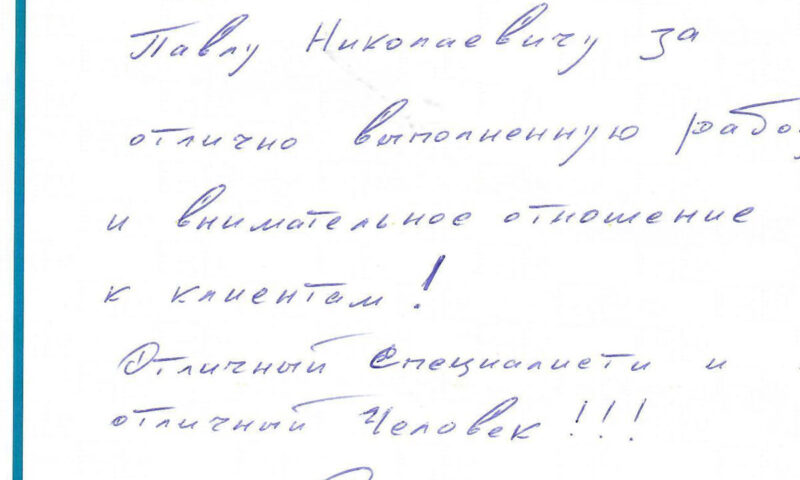 Павлу Николаевичу за
отлично выполненную рабо
и внимательное отношение
к клиентам!
Отличный Специалисти и
отличный Человек!!!